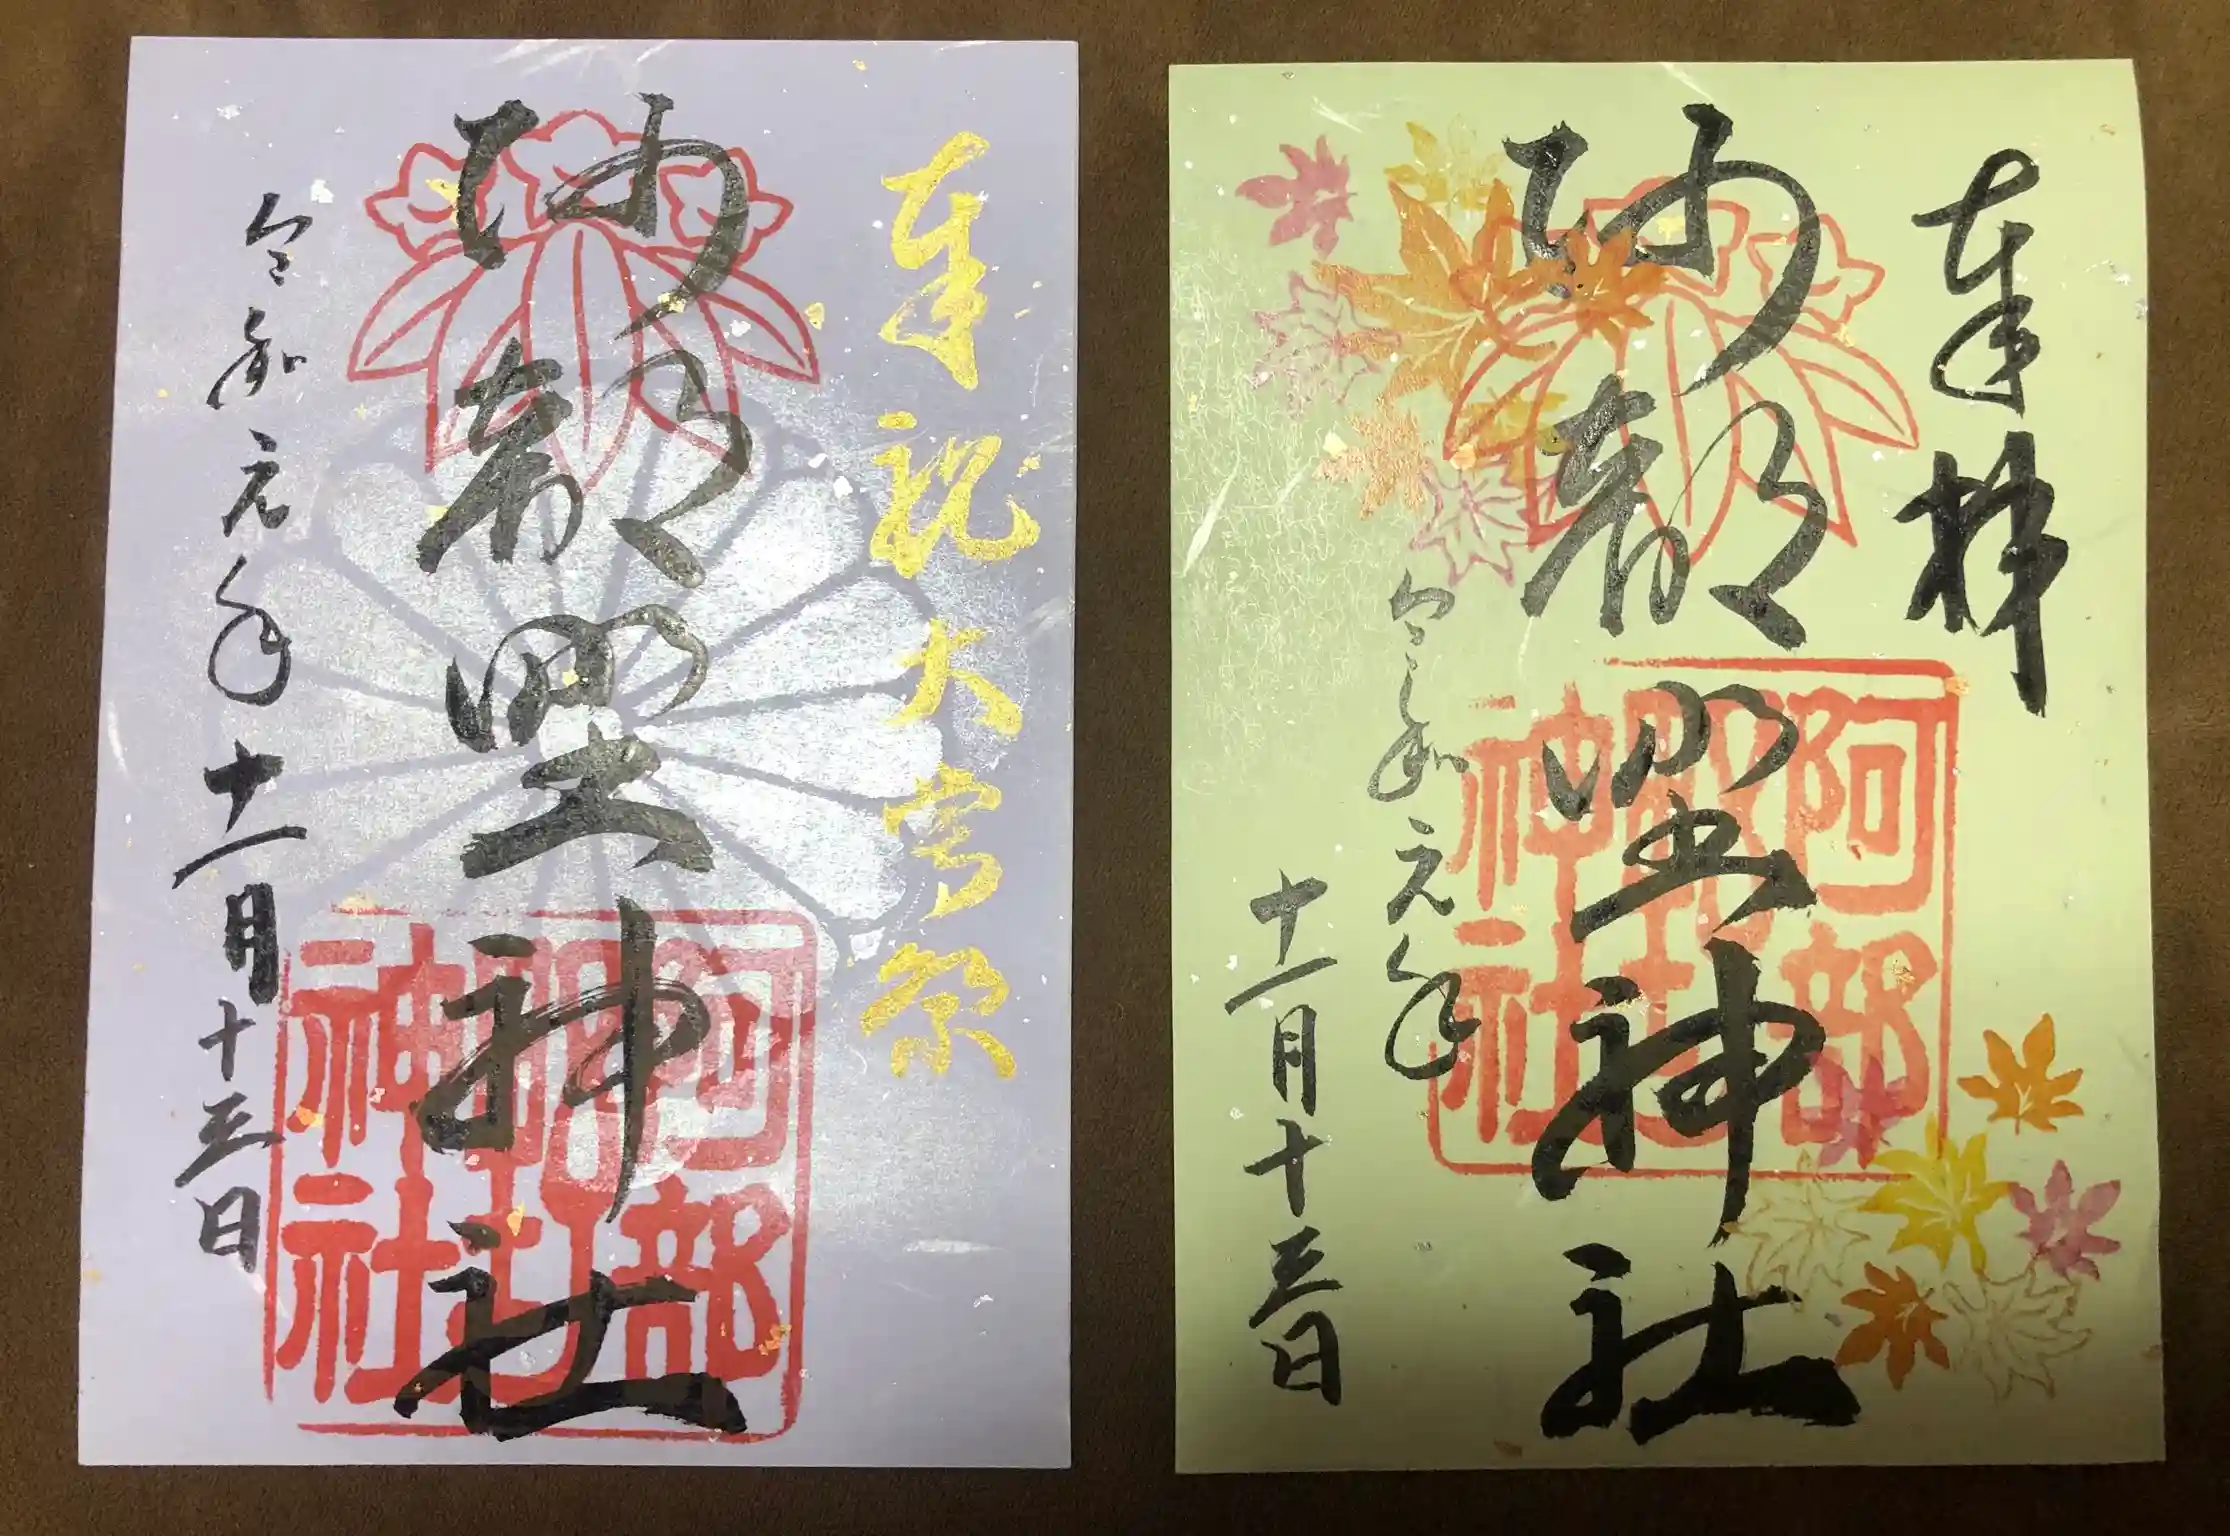 奉祝大嘗祭
阿部野神社
阿部野神社
令和元年十一月十三日
奉拝
阿部野神社
阿部野神社
令和元年
十一月十三日